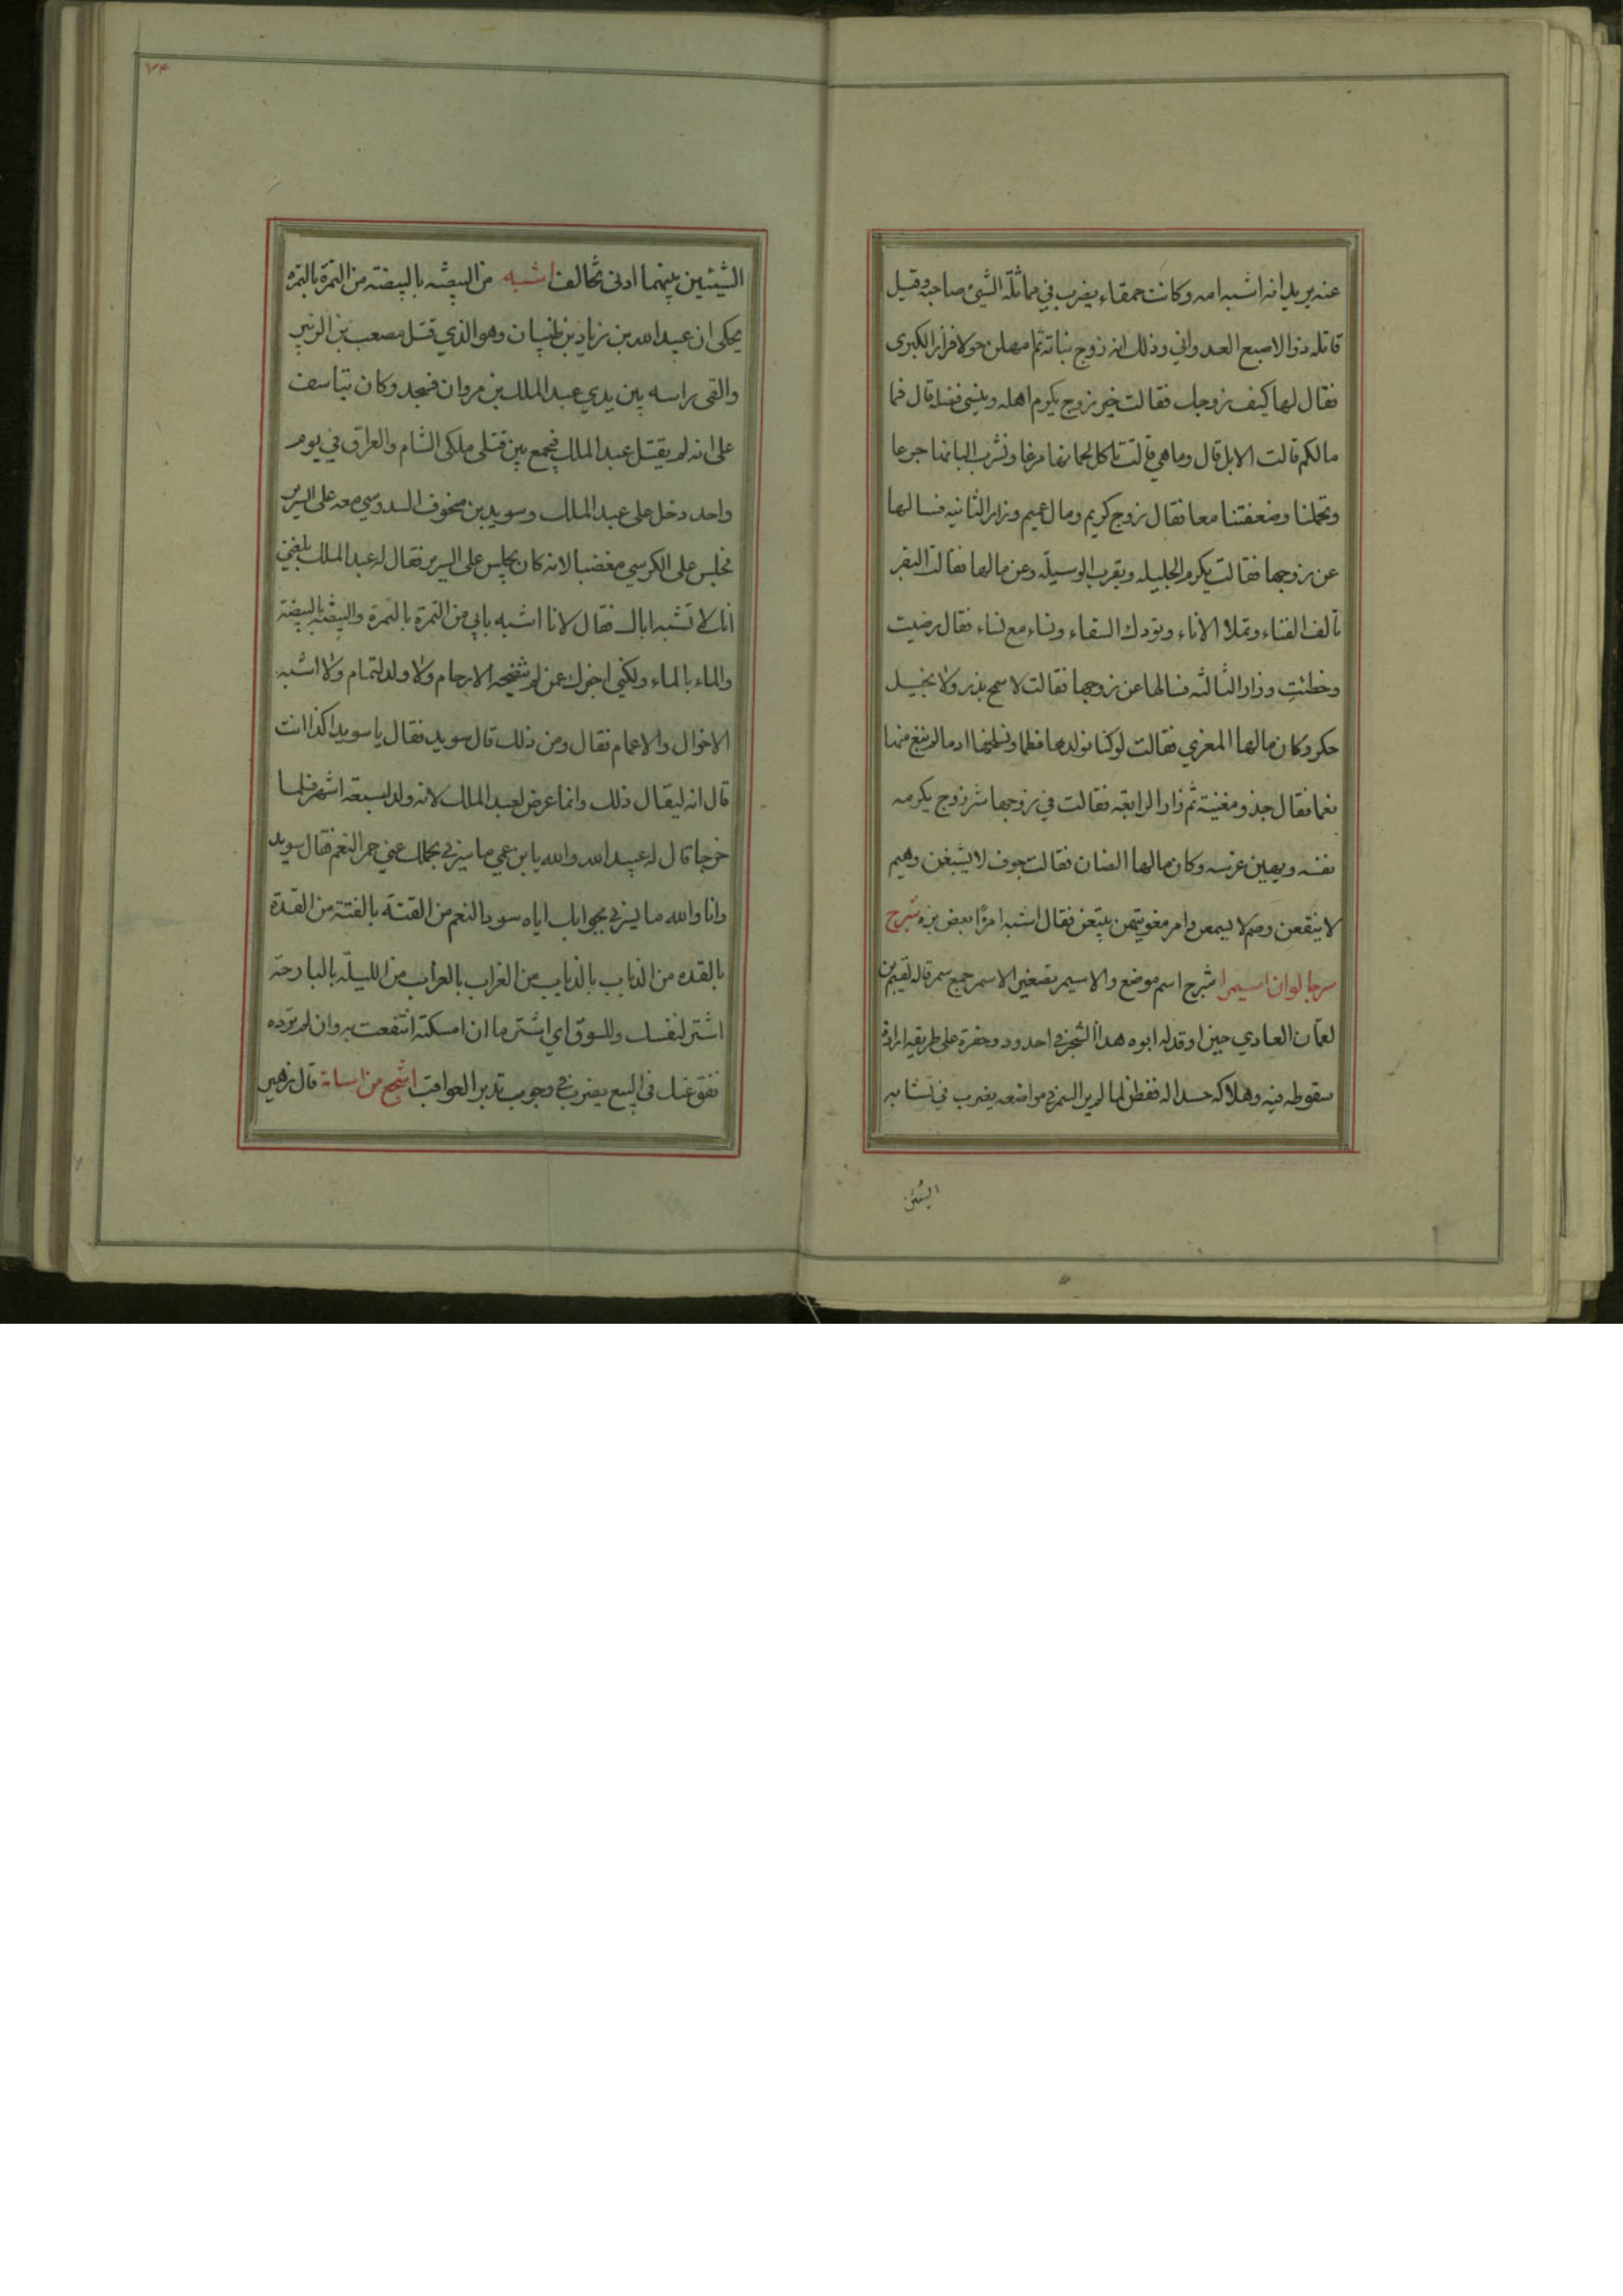 عنه يريد انه اشبه امه وكانت حمقاء يضرب في مماثلة الشيئ صاحبه وقيل
قاتله ذو الاصبع العدواني وذلك انه زوج بناته ثم امهلن حولا فزار الكبرى
فقال لها كيف زوجك فقالت خير زوج يكرم اهله وينسى فضله قال فما
مالكم قالت الابل قال وما هي قالت ناكل لحمانها مزعا ونشرب البانها جرعا
وتحملنا وضعفتنا معا فقال زوج كريم ومال عميم وزار الثانيه فسالها
عن زوجها فقالت يكرم الحليله ويقرب الوسيلة وعن مالها فقالت البقر
تالف الفناء وتملا الاناء وتودك السقاء ونساء مع نساء فقال رضيت
وحظئت وزار الثالثه فسالها عن زوجها فقالت لا سمح بذر ولا بخيل
حكر وكان مالها المعزي فقالت لو كنا نولدها فطما ونسلخها ادما لم نبغ منها
نعما فقال جذو مغنية ثم زار الرابعه فقالت في زوجها شر زوج يكرم
نفسه ويهين عرسه وكان مالها الضان فقالت جوف لا يشبعن وهيم
لا ينقعن وصم لا يسمعن وامر مغويتهن يتبعن فقال اشبه امرًا بعض بزه شرج
سرجا لو ان اسيمرا شرج اسم موضع والاسيمر تصغير الاسمر جمع سمر قاله لقيم بن
لقمان العادي حين اوقد له ابوه هذا الشجر في احدود وحفرة على طريقه ارادة
سقوطه فيه وهلاكه حسدا له ففطن لما لم ير السمر في مواضعه يضرب في تشابه
الشيئين
٧٤
الشيئين بينهما ادنى تخالف اشبه من البيضه بالبيضة من التمرة بالتمرة
يحكى ان عبيد الله بن زياد بن ظبيان وهو الذي قتل مصعب بن الزبير
والقى براسه بين يدي عبد الملك بن مروان فسجد وكان يتاسف
على انه لم يقتل عبد الملك فيجمع بين قتلى ملكى الشام والعراق في يوم
واحد دخل على عبد الملك وسويد بن منجوف السدوسي معه على السرير
فجلس على الكرسي مغضبا لانه كان يجلس على السرير فقال له عبد الملك بلغني
انك لا تشبه اباك فقال لانا اشبه بابي من التمرة بالتمرة والبيضة بالبيضة
والماء بالماء ولكني اخبرك عمن لم تنضجه الارحام ولا ولد لتمام ولا اشبه
الاخوال والاعمام فقال ومن ذلك قال سويد فقال يا سويد اكذا انت
قال انه ليقال ذلك وانما عرض لعبد الملك لانه ولد لسبعة اشهر فلما
خرجا قال له عبيد الله والله يا بن عمي ما يسرني بحملك عني حمر النعم فقال سويد
وانا والله ما يسرني بجوابك اياه سود النعم من القتة بالقتة من القذة
بالقذه من الذباب بالذباب من الغراب بالغراب من الليلة بالبارحة
اشتر لنفسك وللسوق اي اشتر ما ان امسكته انتفعت به وان لم ترده
نفق عنك في البيع يضرب في وجوب تدبر العواقب اشجع من اسامة قال زهير